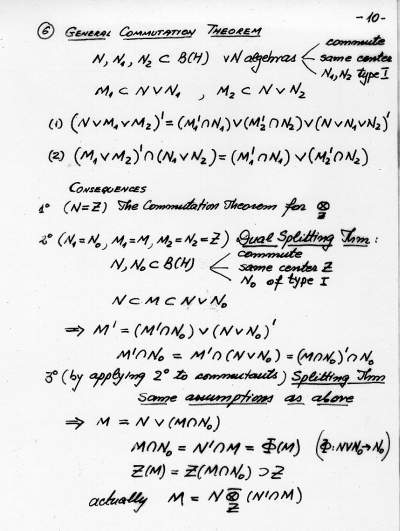 - 10 -
⑥ GENERAL COMMUTATION THEOREM
N, N₁, N₂ ⊂ B(H) vN algebras < commute
same center
N₁, N₂ type I
M₁ ⊂ N ∨ N₁ , M₂ ⊂ N ∨ N₂
(1) (N ∨ M₁ ∨ M₂)' = (M₁' ∩ N₁) ∨ (M₂' ∩ N₂) ∨ (N ∨ N₁ ∨ N₂)'
(2) (M₁ ∨ M₂)' ∩ (N₁ ∨ N₂) = (M₁' ∩ N₁) ∨ (M₂' ∩ N₂)
CONSEQUENCES
1° (N = Z) The Commutation Theorem for ⊗̄_Z
2° (N₁ = N₀, M₁ = M, M₂ = N₂ = Z) Dual Splitting Thm :
N, N₀ ⊂ B(H) < commute
same center Z
N₀ of type I
N ⊂ M ⊂ N ∨ N₀
⇒ M' = (M' ∩ N₀) ∨ (N ∨ N₀)'
M' ∩ N₀ = M' ∩ (N ∨ N₀) = (M ∩ N₀)' ∩ N₀
3° (by applying 2° to commutants) Splitting Thm
Same assumptions as above
⇒ M = N ∨ (M ∩ N₀)
M ∩ N₀ = N' ∩ M = Φ(M) (Φ : N∨N₀ → N₀)
Z(M) = Z(M ∩ N₀) ⊃ Z
actually M = N ⊗̄_Z (N' ∩ M)